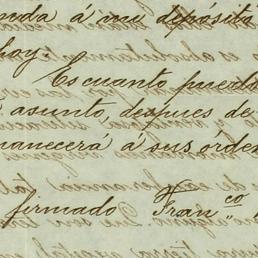 nda á mi depósito
hoy
Es cuanto puedo
asunto, despues de
manecerá á sus órde
firmado Fran.co